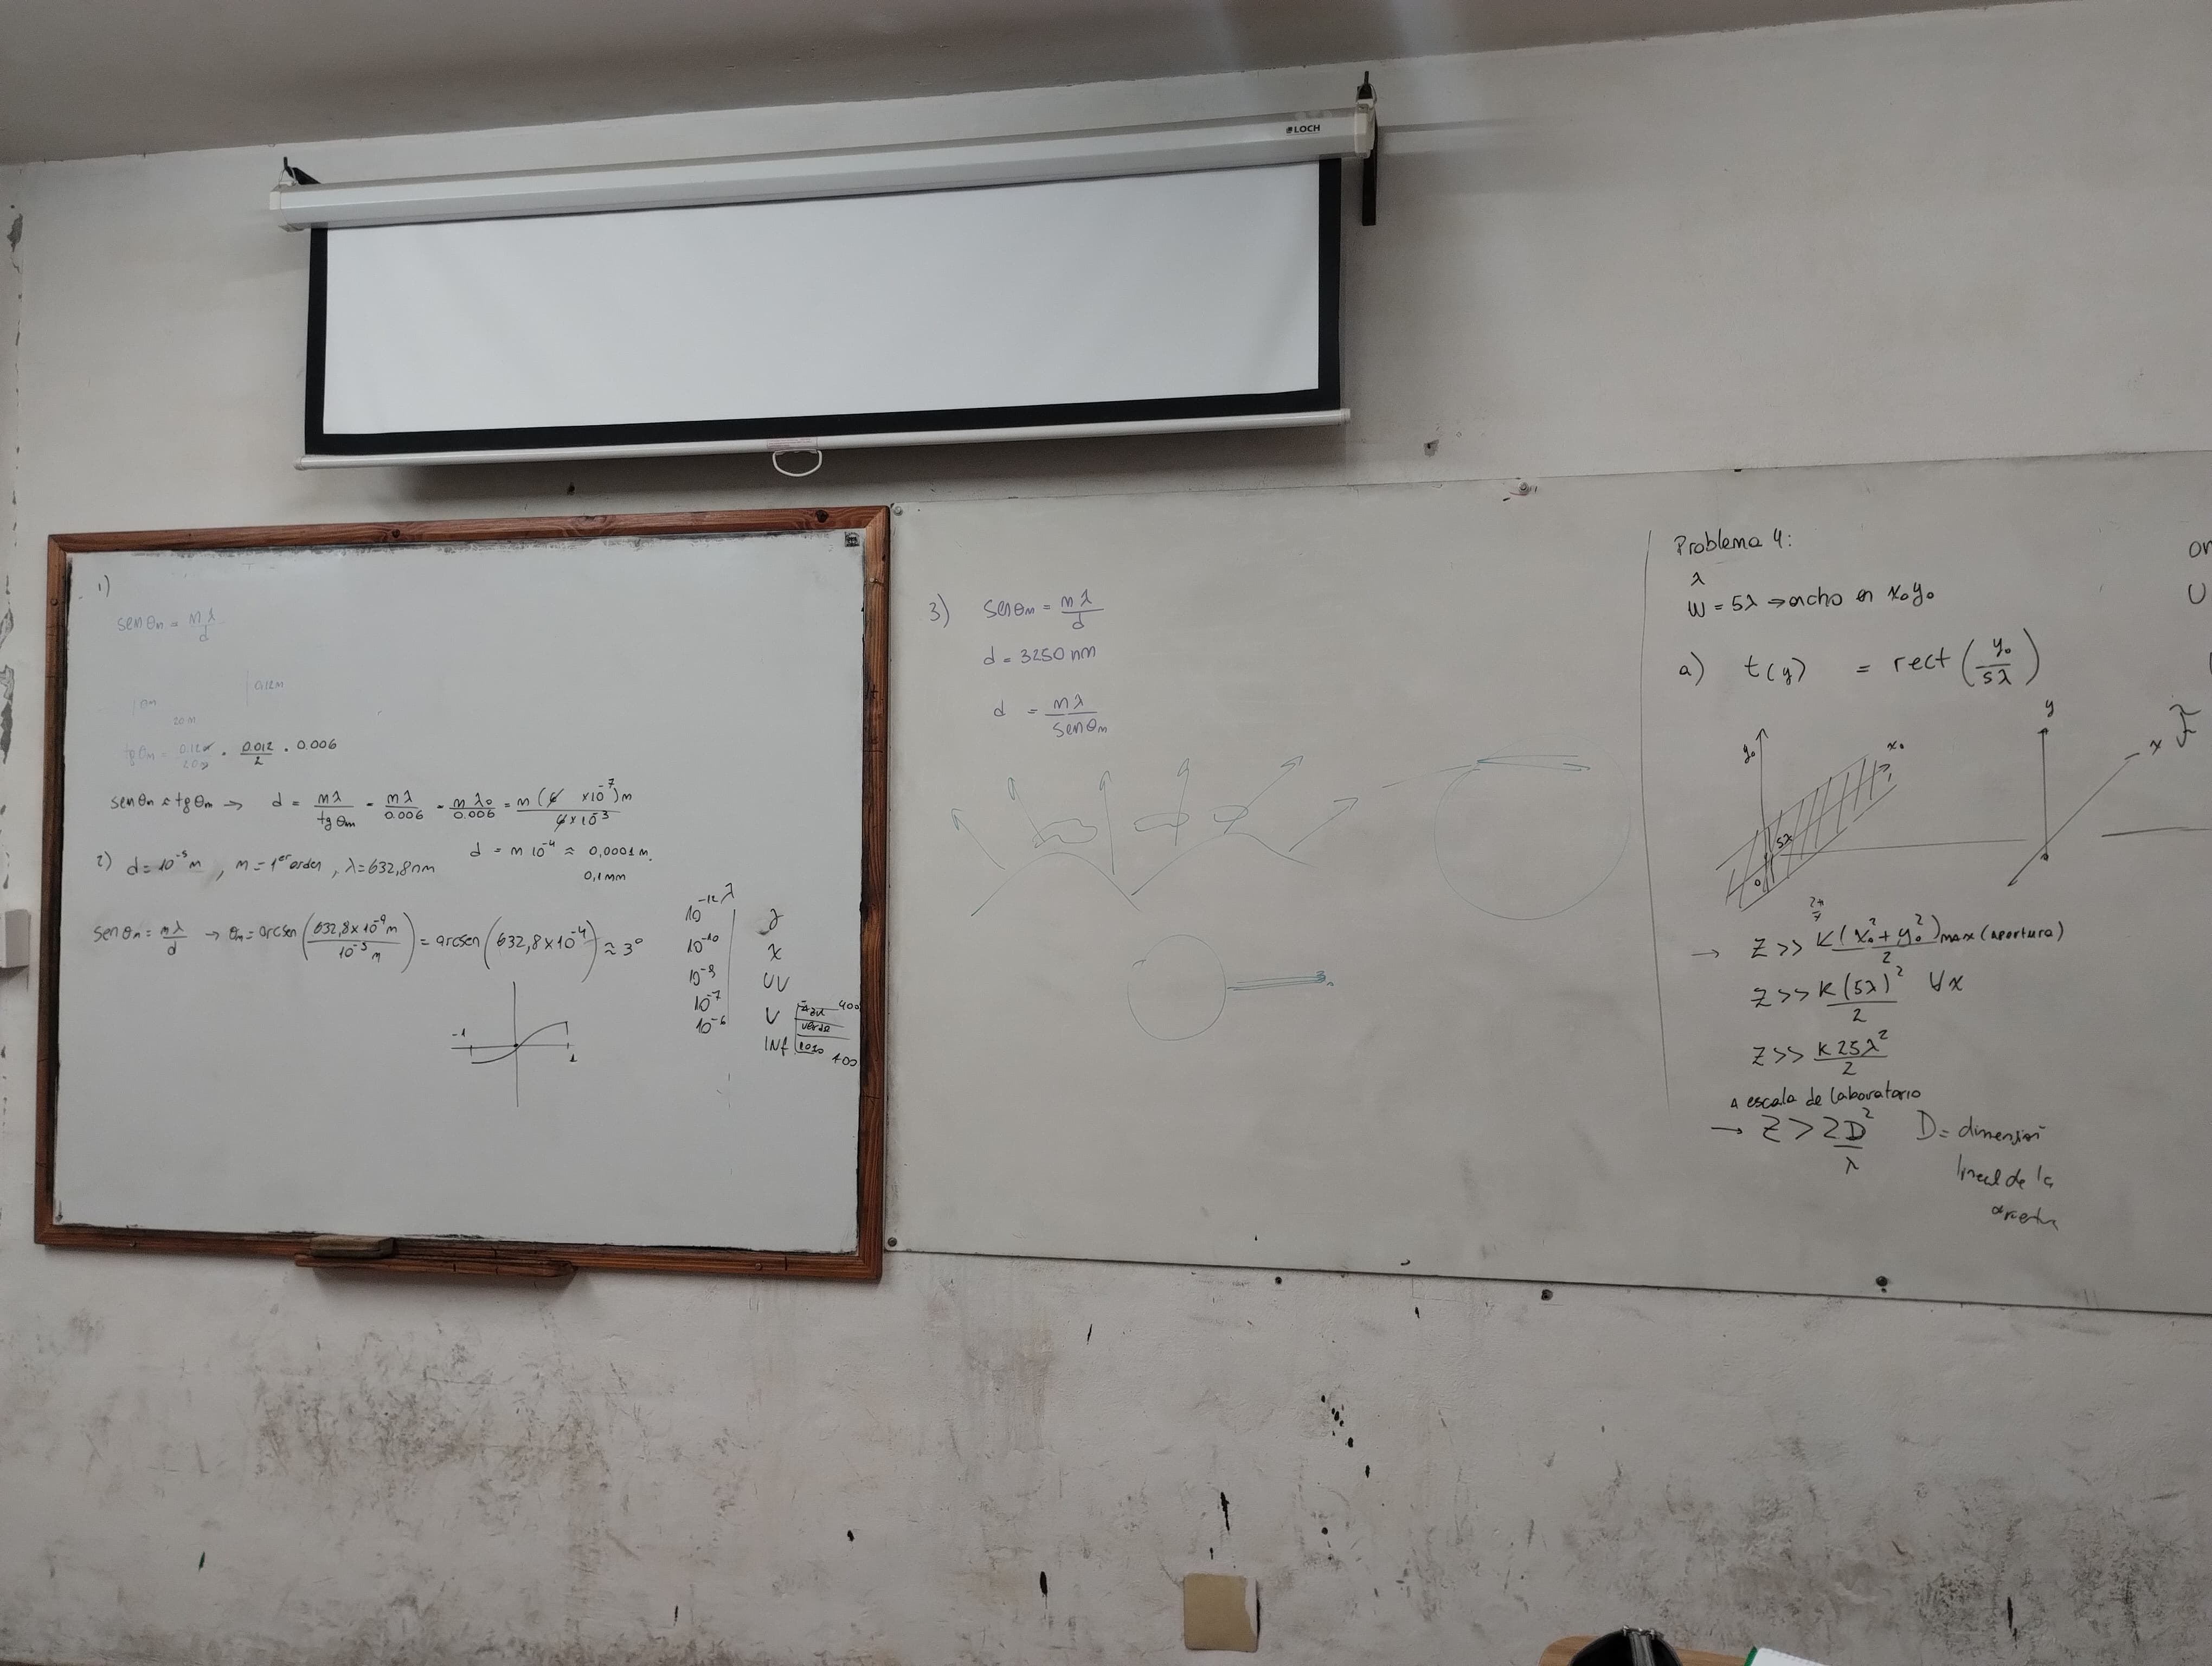 LOCH
1)
sen θm = mλ/d
0.12m
20m
tg θm = 0.12m/20m = 0.012/2 = 0.006
sen θm ≈ tg θm → d = mλ/tg θm = mλ/0.006 = mλ0/0.006 = m(6 x10^-7)m/6x10^-3
d = m 10^-4 ≈ 0,0001 m.
0,1mm
2) d = 10^-5 m, m = 1er orden, λ = 632,8nm
sen θm = mλ/d → θm = arcsen(632,8x10^-9 m/10^-5 m) = arcsen(632,8x10^-4) ≈ 3°
-1 1
λ
10^-12 γ
10^-10 X
10^-9 UV
10^-7 V
10^-6 INf
Azul 400
verde
rojo 700
3) sen θm = mλ/d
d = 3250 nm
d = mλ/sen θm
Problema 4:
λ
W = 5λ → ancho en x0 y0
a) t(y) = rect(y0/5λ)
y0 x0 y x
5λ
0
→ Z >> K(x0^2 + y0^2)max (apertura)/2
Z >> K(5λ)^2/2 ∀x
Z >> K25λ^2/2
A escala de laboratorio
→ Z > 2D^2/λ D = dimensión
lineal de la